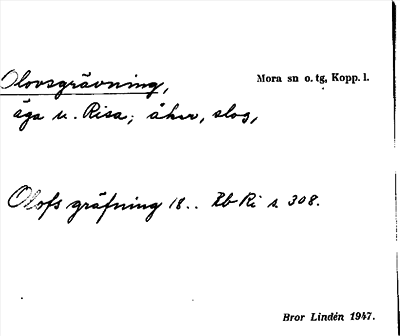 Olovsgrävning, Mora sn o. tg, Kopp. l.
äga u. Risa; åker, slog,
Olofs gräfning 18.. Rb Ri s. 308.
Bror Lindén 1947.